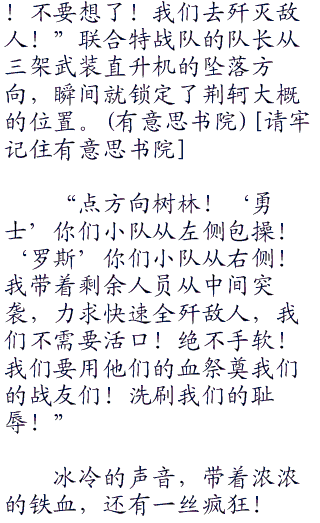 ！不要想了！我们去歼灭敌
人！”联合特战队的队长从
三架武装直升机的坠落方
向，瞬间就锁定了荆轲大概
的位置。(有意思书院)[请牢
记住有意思书院]
“点方向树林！‘勇
士’你们小队从左侧包操！
‘罗斯’你们小队从右侧！
我带着剩余人员从中间突
袭，力求快速全歼敌人，我
们不需要活口！绝不手软！
我们要用他们的血祭奠我们
的战友们！洗刷我们的耻
辱！”
冰冷的声音，带着浓浓
的铁血，还有一丝疯狂！